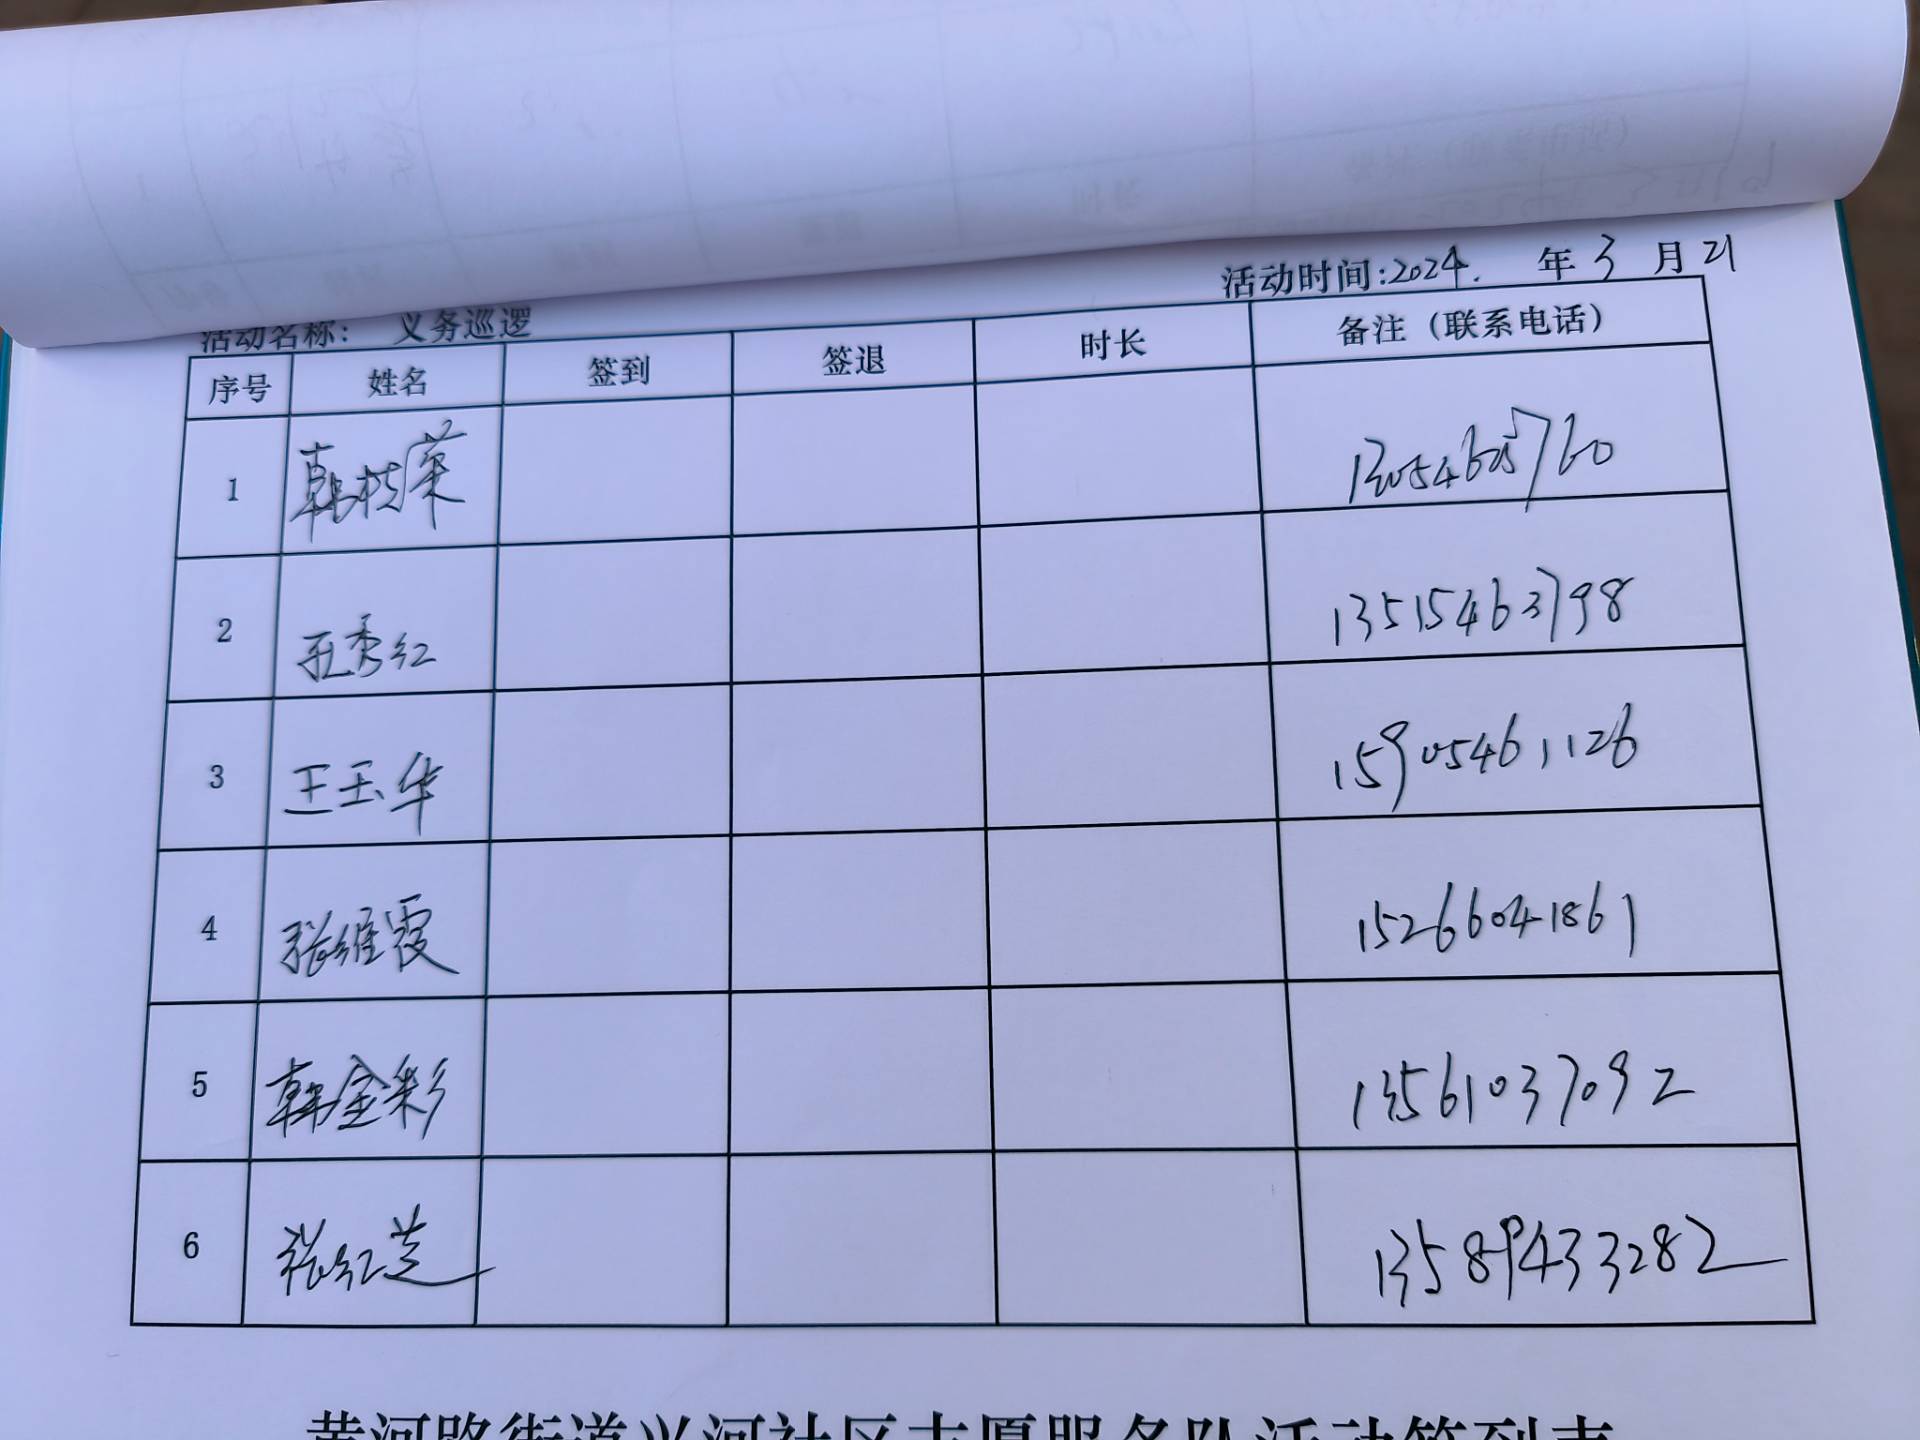 活动时间:2024. 年 3 月 21
活动名称: 义务巡逻
序号 姓名 签到 签退 时长 备注（联系电话）
1 韩桂荣 13054625760
2 秀红 13515463798
3 王玉华 15905461126
4 张维霞 15266041861
5 韩金彩 13561037092
6 张红芝 13589433282
黄河路街道义河社区志愿服务队活动签到表